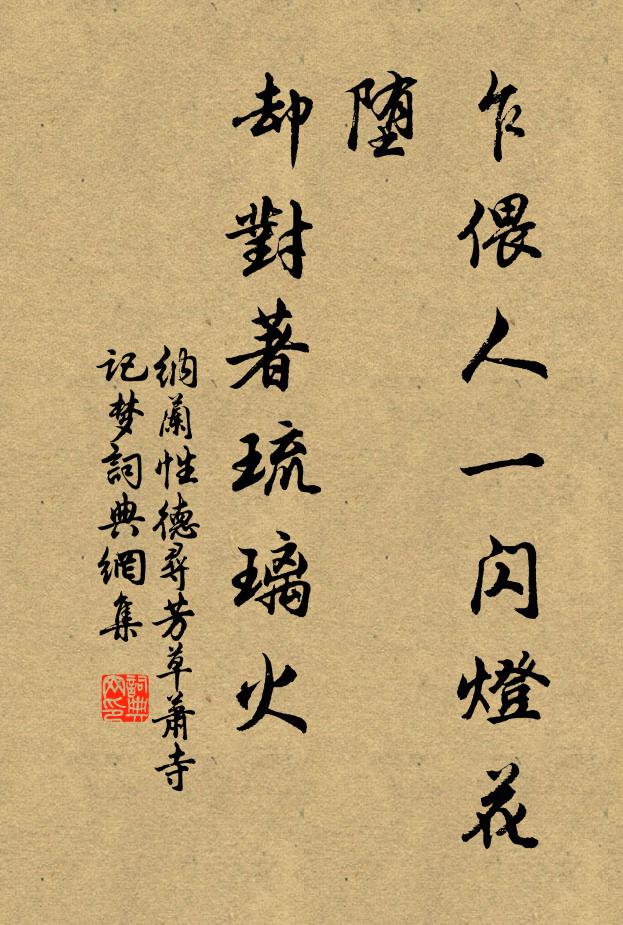 乍偎人一闪燈花
堕
却對著琉璃火
纳蘭性德尋芳草蕭寺
记梦詞典網集
詞典